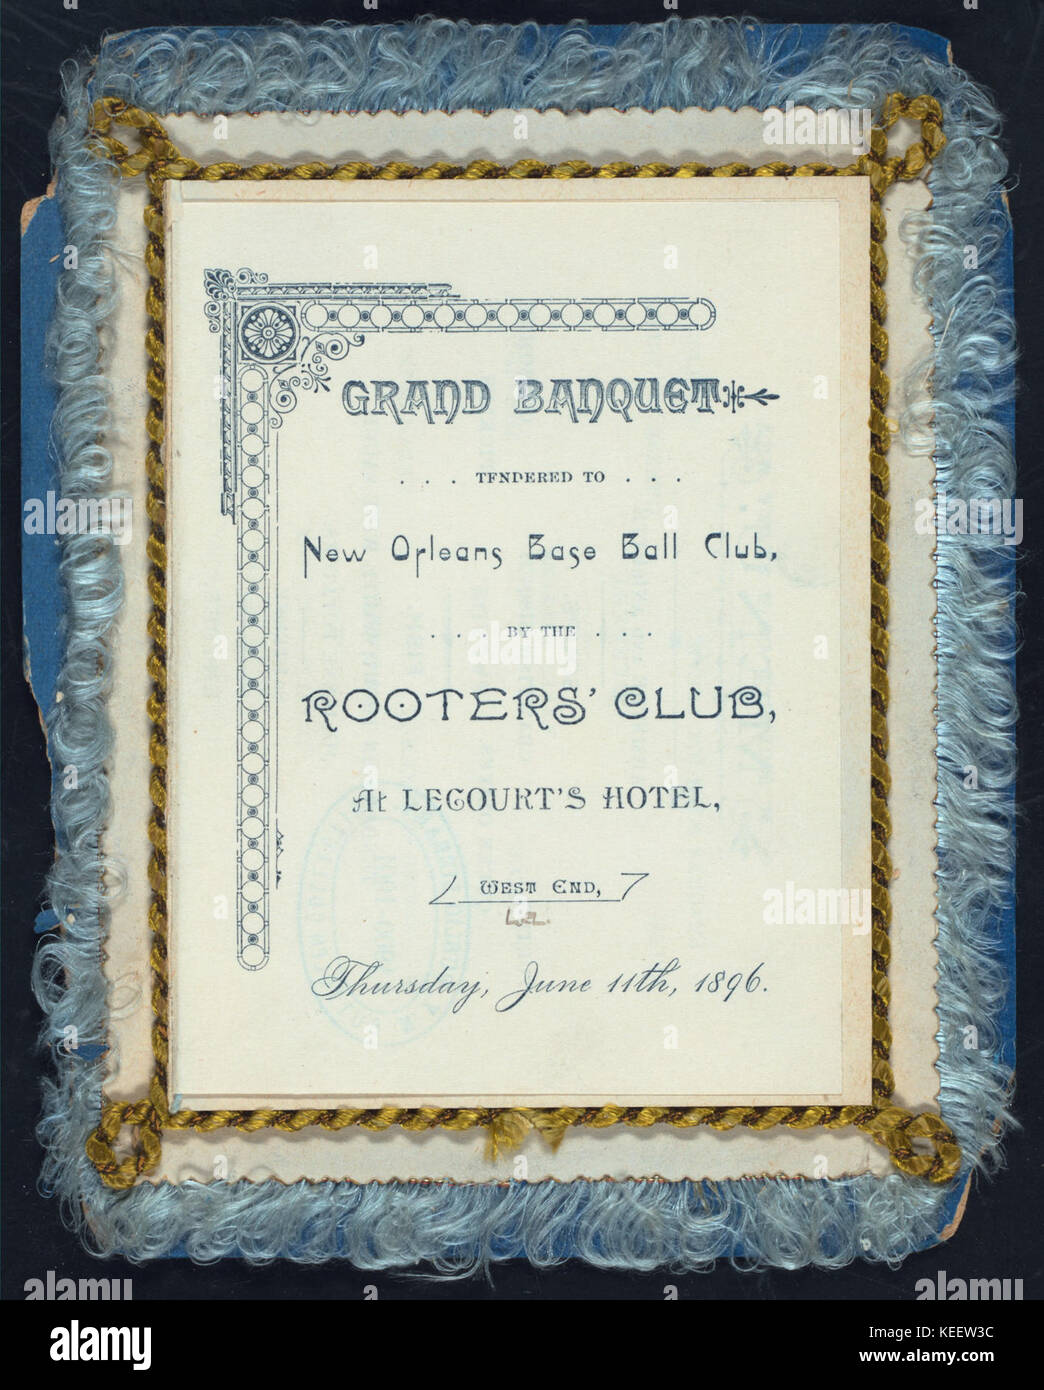 GRAND BANQUET
. . . TENDERED TO . . .
New Orleans Base Ball Club,
. . . BY THE . . .
ROOTERS' CLUB,
At LECOURT'S HOTEL,
WEST END,
La.
Thursday, June 11th, 1896.
alamy
Image ID: KEEW3C
www.alamy.com